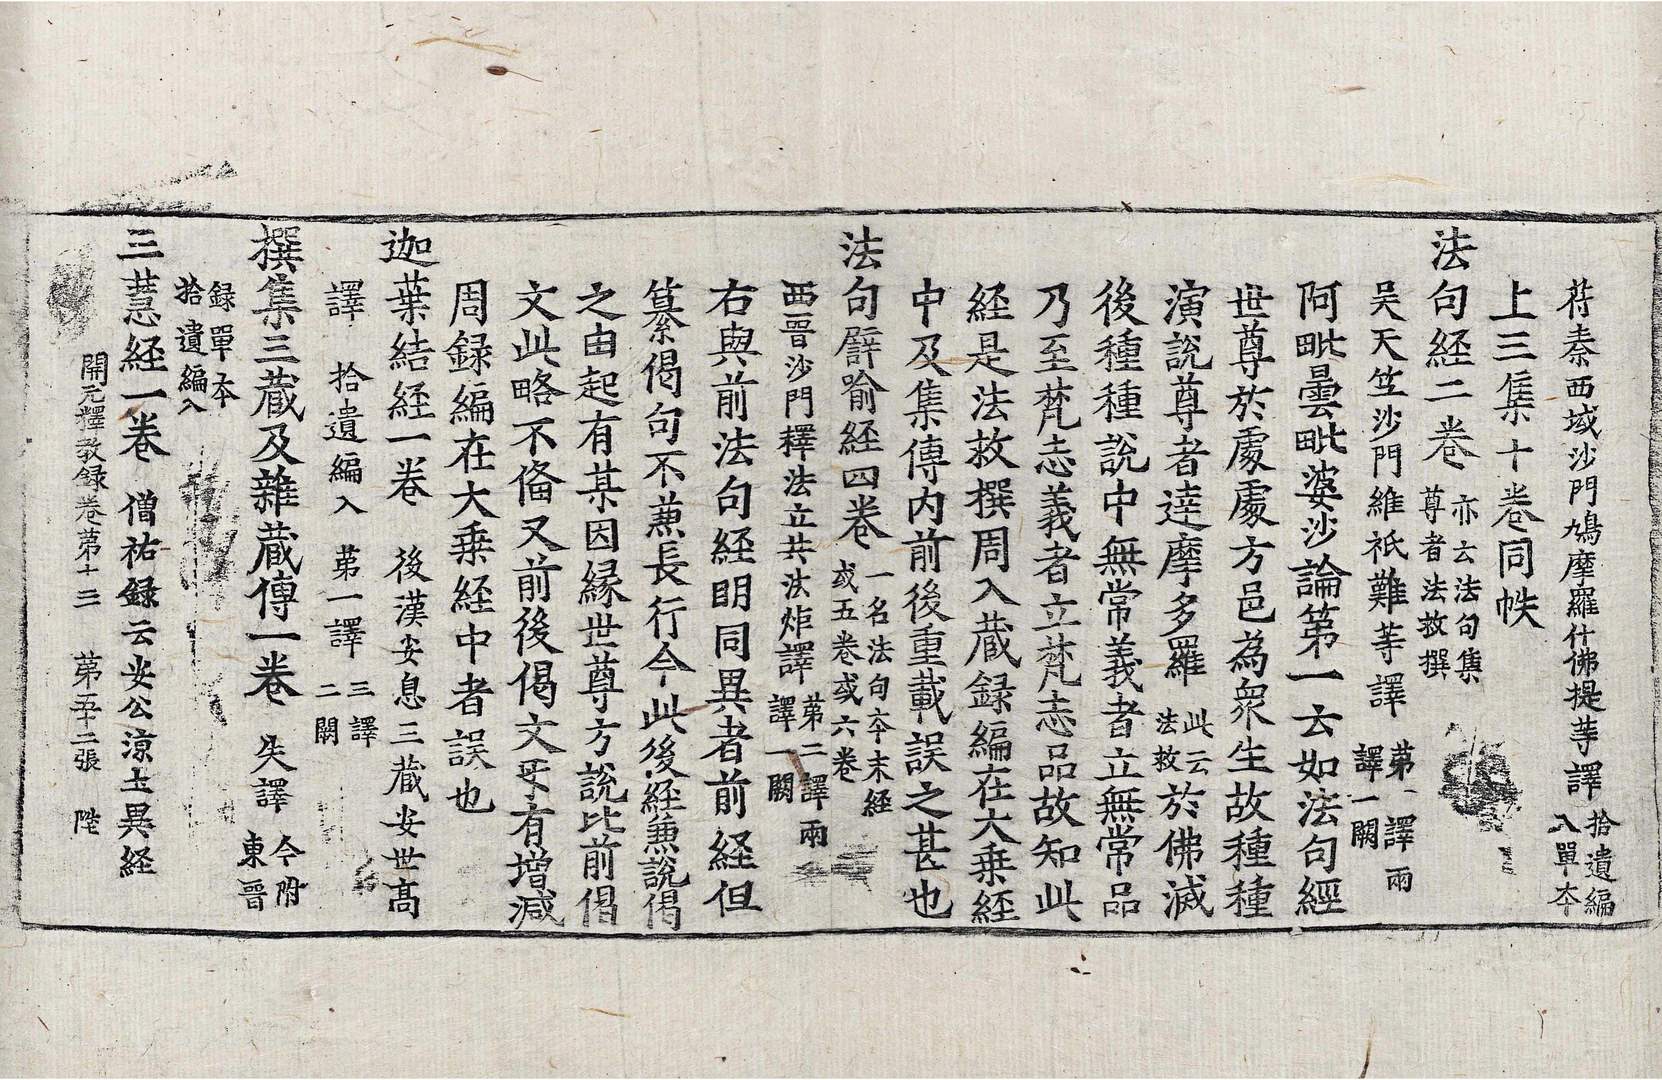 苻秦西域沙門鳩摩羅什佛提等譯 拾遺編入單本
上三集十卷同帙
法句經二卷 亦云法句集尊者法救撰
吳天竺沙門維祇難等譯 第一譯兩譯一闕
阿毗曇毗婆沙論第一云如法句經
世尊於處處方邑為衆生故種種
演說尊者達摩多羅 此云法救 於佛滅
後種種說中無常義者立無常品
乃至梵志義者立梵志品故知此
経是法救撰周入蔵録編在大乗経
中及集傳内前後重載誤之甚也
法句譬喻経四卷 一名法句本末経或五卷或六卷
西晉沙門釋法立共法炬譯 第二譯兩譯一闕
右與前法句経明同異者前経但
纂偈句不兼長行今此後経兼說偈
之由起有某因縁世尊方說比前偈
文此略不俻又前後偈文㸦有増減
周録編在大乗経中者誤也
迦葉結経一卷 後漢安息三蔵安世髙
譯 拾遺編入 第一譯 三譯二闕
撰集三蔵及雜蔵傳一卷 失譯 今附東晉
録單本拾遺編入
三慧経一卷 僧祐録云安公涼土異経
開元釋教録卷第十三 第五十二張 陛